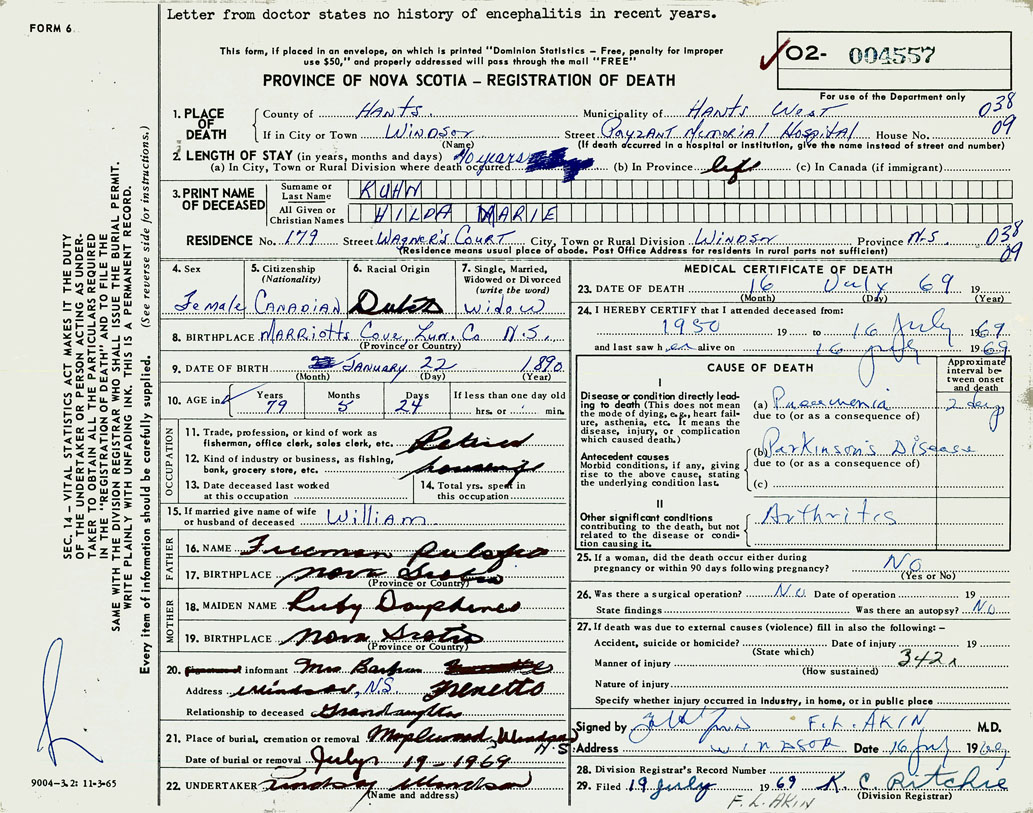 Letter from doctor states no history of encephalitis in recent years.
FORM 6
This form, if placed in an envelope, on which is printed "Dominion Statistics – Free, penalty for improper
use $50," and properly addressed will pass through the mail "FREE"
PROVINCE OF NOVA SCOTIA – REGISTRATION OF DEATH
✓ 02- 004557
For use of the Department only
1. PLACE OF DEATH { County of HANTS. Municipality of HANTS WEST 038
If in City or Town WINDSOR Street PAYZANT MEMORIAL HOSPITAL House No. 09
(Name) (If death occurred in a hospital or institution, give the name instead of street and number)
2. LENGTH OF STAY (in years, months and days) 40 years
(a) In City, Town or Rural Division where death occurred (b) In Province life (c) In Canada (if immigrant)
3. PRINT NAME OF DECEASED { Surname or Last Name KUHN
All Given or Christian Names HILDA MARIE
RESIDENCE No. 179 Street WAGNER'S COURT City, Town or Rural Division WINDSOR Province N.S. 038
(Residence means usual place of abode. Post Office Address for residents in rural parts not sufficient) 09
4. Sex Female
5. Citizenship (Nationality) CANADIAN
6. Racial Origin Dutch
7. Single, Married, Widowed or Divorced (write the word) WIDOW
8. BIRTHPLACE MARRIOTTS COVE, LUN. CO. N.S.
(Province or Country)
9. DATE OF BIRTH JANUARY 22 1890
(Month) (Day) (Year)
10. AGE in { Years 79 Months 5 Days 24 If less than one day old
hrs. or min.
OCCUPATION
11. Trade, profession or kind of work as fisherman, office clerk, sales clerk, etc. Retired
12. Kind of industry or business, as fishing, bank, grocery store, etc.
13. Date deceased last worked at this occupation
14. Total yrs. spent in this occupation
15. If married give name of wife or husband of deceased William
FATHER
16. NAME Freeman
17. BIRTHPLACE Nova Scotia
(Province or Country)
MOTHER
18. MAIDEN NAME Ruby Dauphinee
19. BIRTHPLACE Nova Scotia
(Province or Country)
20. informant Mrs Barbara
Address Windsor, N.S. Frenette
Relationship to deceased Grandaughter
21. Place of burial, cremation or removal Maplewood, Windsor N.S.
Date of burial or removal July 19-1969
22. UNDERTAKER Lindsay Windsor
(Name and address)
MEDICAL CERTIFICATE OF DEATH
23. DATE OF DEATH 16 July 69 19
(Month) (Day) (Year)
24. I HEREBY CERTIFY that I attended deceased from:
1950 19 to 16 July 1969
and last saw her alive on 16 July 1969
CAUSE OF DEATH
Approximate interval between onset and death
I
Disease or condition directly leading to death (This does not mean the mode of dying, e.g., heart failure, asthenia, etc. It means the disease, injury, or complication which caused death.)
(a) Pneumonia 2 days
due to (or as a consequence of)
Antecedent causes
Morbid conditions, if any, giving rise to the above cause, stating the underlying condition last.
(b) Parkinson's Disease
due to (or as a consequence of)
(c)
II
Other significant conditions contributing to the death, but not related to the disease or condition causing it.
Arthritis
25. If a woman, did the death occur either during pregnancy or within 90 days following pregnancy? NO
(Yes or No)
26. Was there a surgical operation? NO Date of operation 19
State findings Was there an autopsy? NO
27. If death was due to external causes (violence) fill in also the following: –
Accident, suicide or homicide? Date of injury 19
(State which)
Manner of injury 342x
(How sustained)
Nature of injury
Specify whether injury occurred in Industry, in home, or in public place
Signed by F. L. AKIN M.D.
Address WINDSOR Date 16 July 1969
28. Division Registrar's Record Number
29. Filed 19 July 1969 K. C. Ritchie
(Division Registrar)
F. L. AKIN
SEC. 14 – VITAL STATISTICS ACT MAKES IT THE DUTY
OF THE UNDERTAKER OR PERSON ACTING AS UNDER-
TAKER TO OBTAIN ALL THE PARTICULARS REQUIRED
IN THE "REGISTRATION OF DEATH" AND TO FILE THE
SAME WITH THE DIVISION REGISTRAR WHO SHALL ISSUE THE BURIAL PERMIT.
WRITE PLAINLY WITH UNFADING INK. THIS IS A PERMANENT RECORD.
Every item of information should be carefully supplied. (See reverse side for instructions.)
9004–3.2: 11-3-65